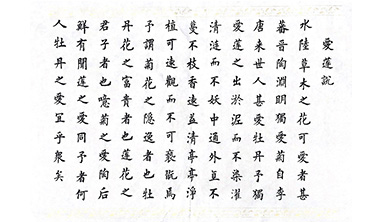 愛蓮說
水陸草木之花可愛者甚
蕃晉陶淵明獨愛菊自李
唐来世人甚愛牡丹予獨
愛蓮之出於泥而不染濯
清漣而不妖中通外直不
蔓不枝香遠益清亭亭淨
植可遠觀而不可褻翫焉
予謂菊花之隱逸者也牡
丹花之富貴者也蓮花之
君子者也噫菊之愛陶后
鮮有聞蓮之愛同予者何
人牡丹之愛宜乎衆矣